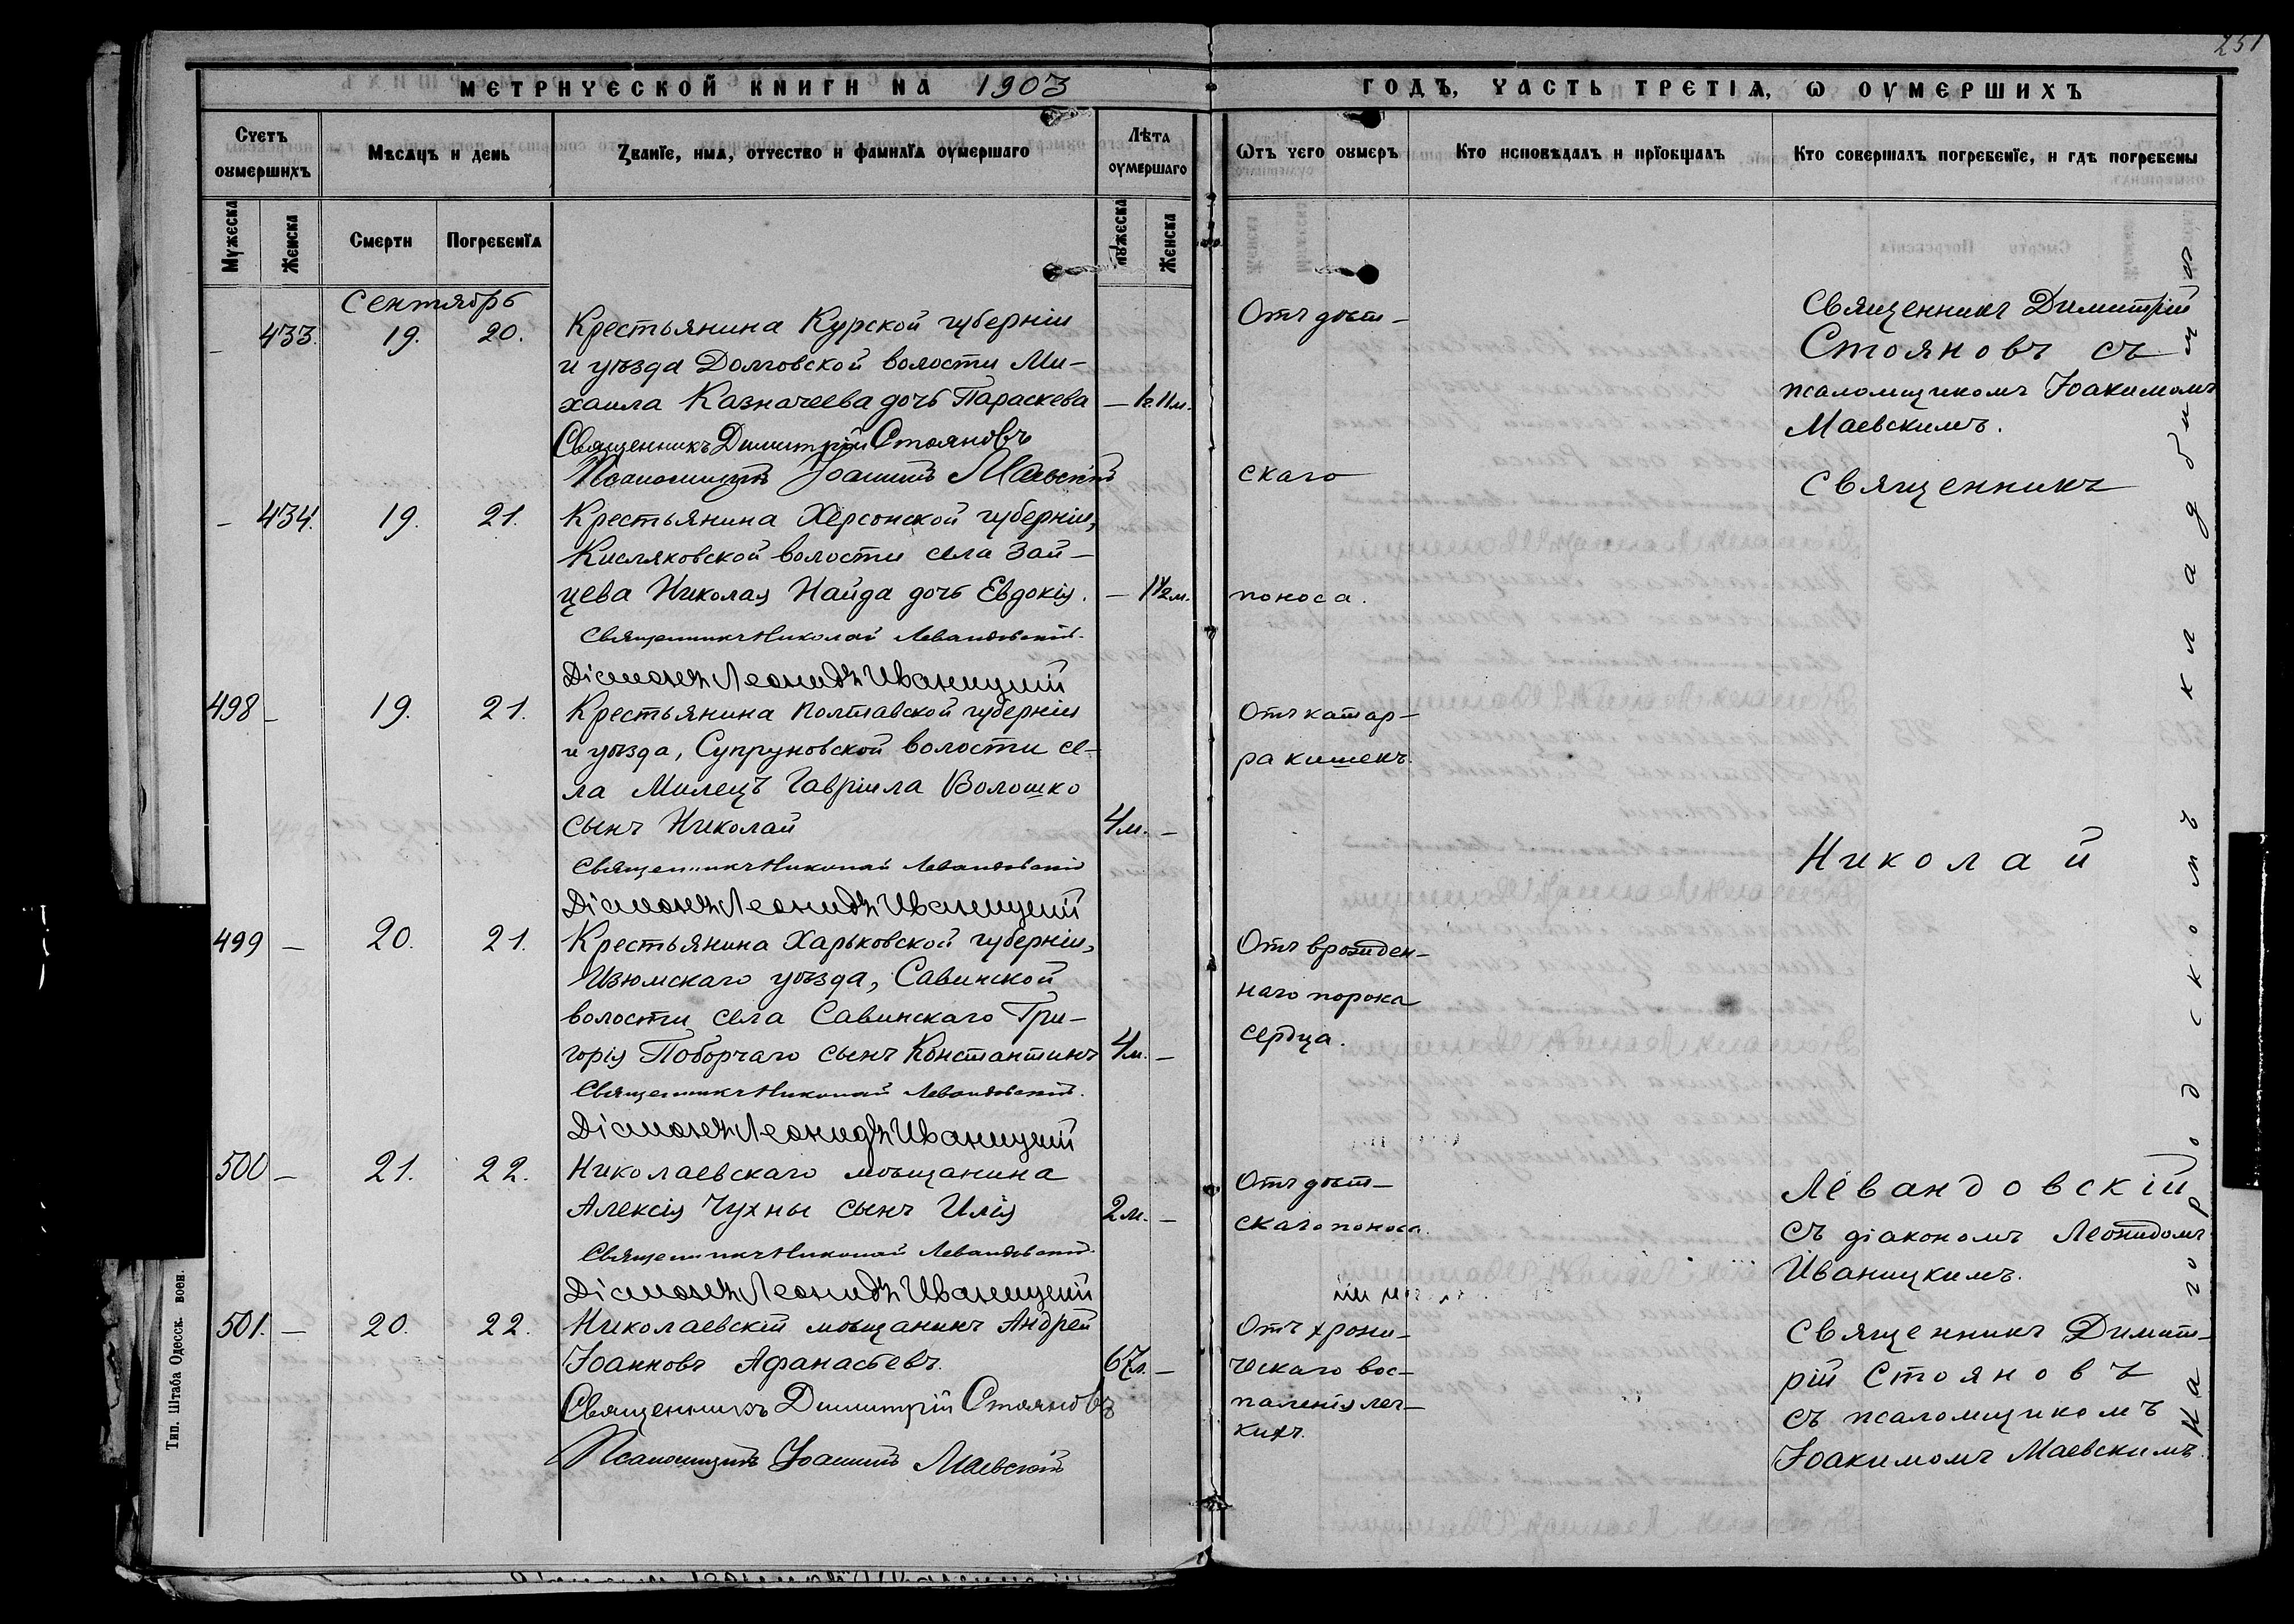 251
МЕТРИЧЕСКОЙ КНИГИ НА 1903
ГОДЪ, ЧАСТЬ ТРЕТІѦ, Ѡ ОУМЕРШИХЪ
Счетъ оумершихъ
Мѣсяцъ и день
Званїе, имѧ, отчество и фамилїѧ оумершаго
Лѣта оумершаго
Ѿтъ чего оумеръ
Кто исповѣдалъ и прїобщалъ
Кто совершалъ погребенїе, и гдѣ погребены
Мужеска
Женска
Смерти
Погребенїѧ
Мужеска
Женска
Сентябрь
– 433. 19. 20. Крестьянина Курской губерніи
и уѣзда Долговской волости Ми-
хаила Казначеева дочь Параскева – 1г. 11м.
Священникъ Димитрій Стояновъ
Псаломщикъ Іоакимъ Маевскій
– 434. 19. 21. Крестьянина Херсонской губерніи,
Кисляковской волости села Зай-
цева Николая Найда дочь Евдокія. – 1½м.
Священникъ Николай Левандовскій.
Діаконъ Леонидъ Иваницкій
498 – 19. 21. Крестьянина Полтавской губерніи
и уѣзда, Супруновской волости се-
ла Милецъ Гавріила Волошко
сынъ Николай 4м. –
Священникъ Николай Левандовскій
Діаконъ Леонидъ Иваницкій
499 – 20. 21. Крестьянина Харьковской губерніи,
Изюмскаго уѣзда, Савинской
волости села Савинскаго Гри-
горія Поборчаго сынъ Константинъ 4м. –
Священникъ Николай Левандовскій.
Діаконъ Леонидъ Иваницкій
500 – 21. 22. Николаевскаго мѣщанина
Алексія Чухны сынъ Илія 2м. –
Священникъ Николай Левандовскій.
Діаконъ Леонидъ Иваницкій
501. – 20. 22. Николаевскій мѣщанинъ Андрей
Іоанновъ Афанасьевъ. 67л. –
Священникъ Димитрій Стояновъ
Псаломщикъ Іоакимъ Маевскій
Отъ дѣт-
скаго
поноса.
Отъ катар-
ра кишекъ.
Отъ врожден-
наго порока
сердца.
Отъ дѣт-
скаго поноса.
Отъ хрони-
ческаго вос-
паленія лег-
кихъ.
Священникъ Димитрій
Стояновъ съ
псаломщикомъ Іоакимомъ
Маевскимъ.
Священникъ
Николай
Левандовскій
съ діакономъ Леонидомъ
Иваницкимъ.
Священникъ Димит-
рій Стояновъ
съ псаломщикомъ
Іоакимомъ Маевскимъ.
На городскомъ кладбищѣ
Тип. Штаба Одесск. воен.